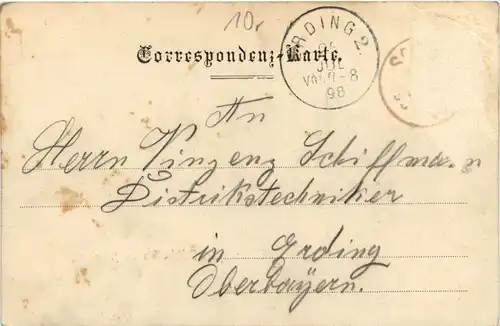 10.
Correspondenz-Karte.
ERDING 2.
JUL
98
An
Herrn Vinzenz Schiffmann
Distriktstechniker
in Erding
Oberbayern.